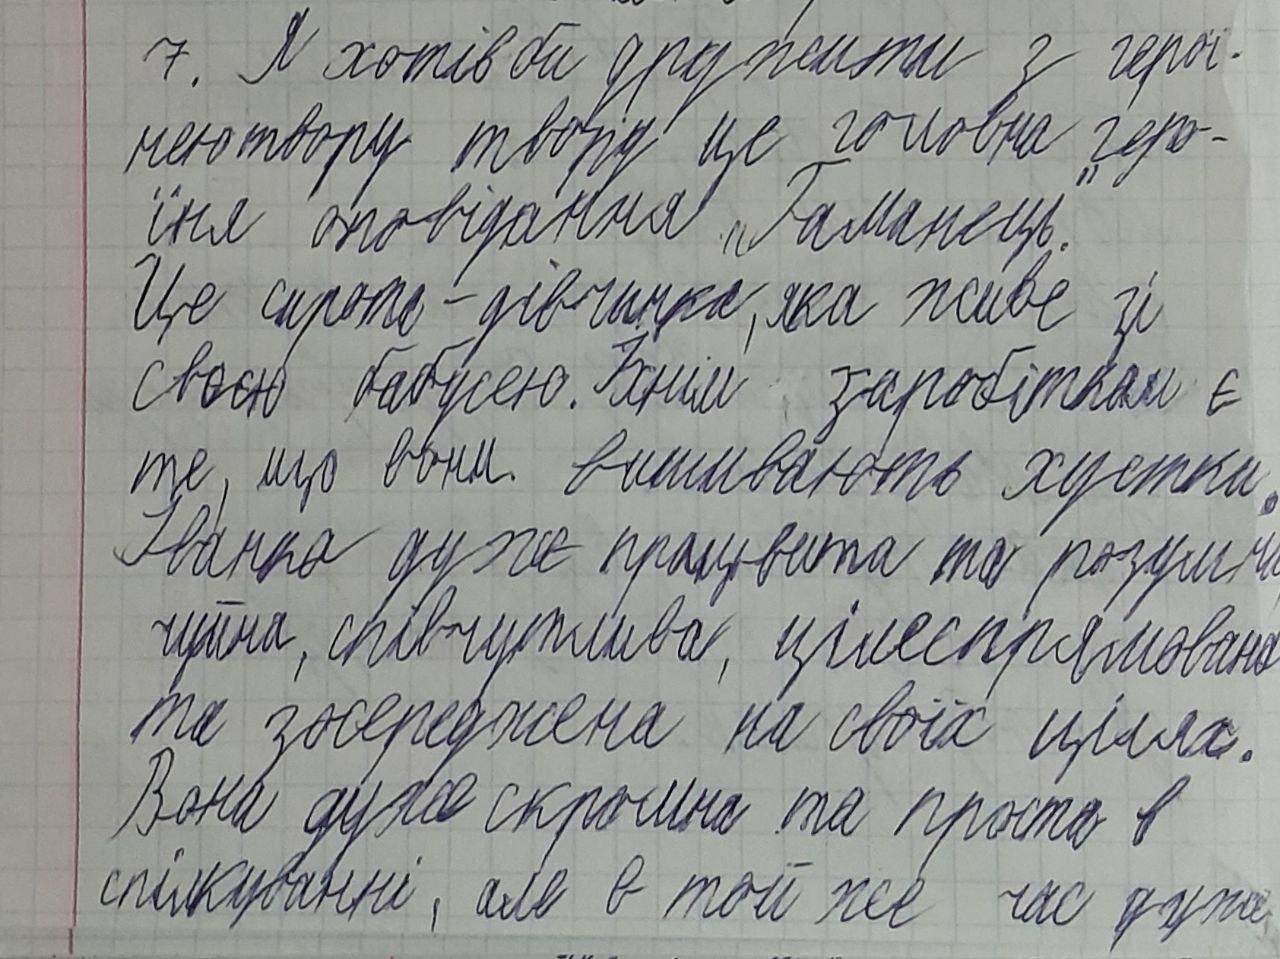 7. Я хотів би дружити з герої-
неютвору твору це головна геро-
їня оповідання „Гаманець."
Це сирота - дівчинка, яка живе зі
своєю бабусею. Їхнім заробітком є
те, що вони вишивають хустки.
Іванка дуже працьвита та розумна
чуйна, співчутлива, цілеспрямована
та зосереджена на своїх цілях.
Вона дуже скромна та проста в
спілкуванні, але в той же час дуже